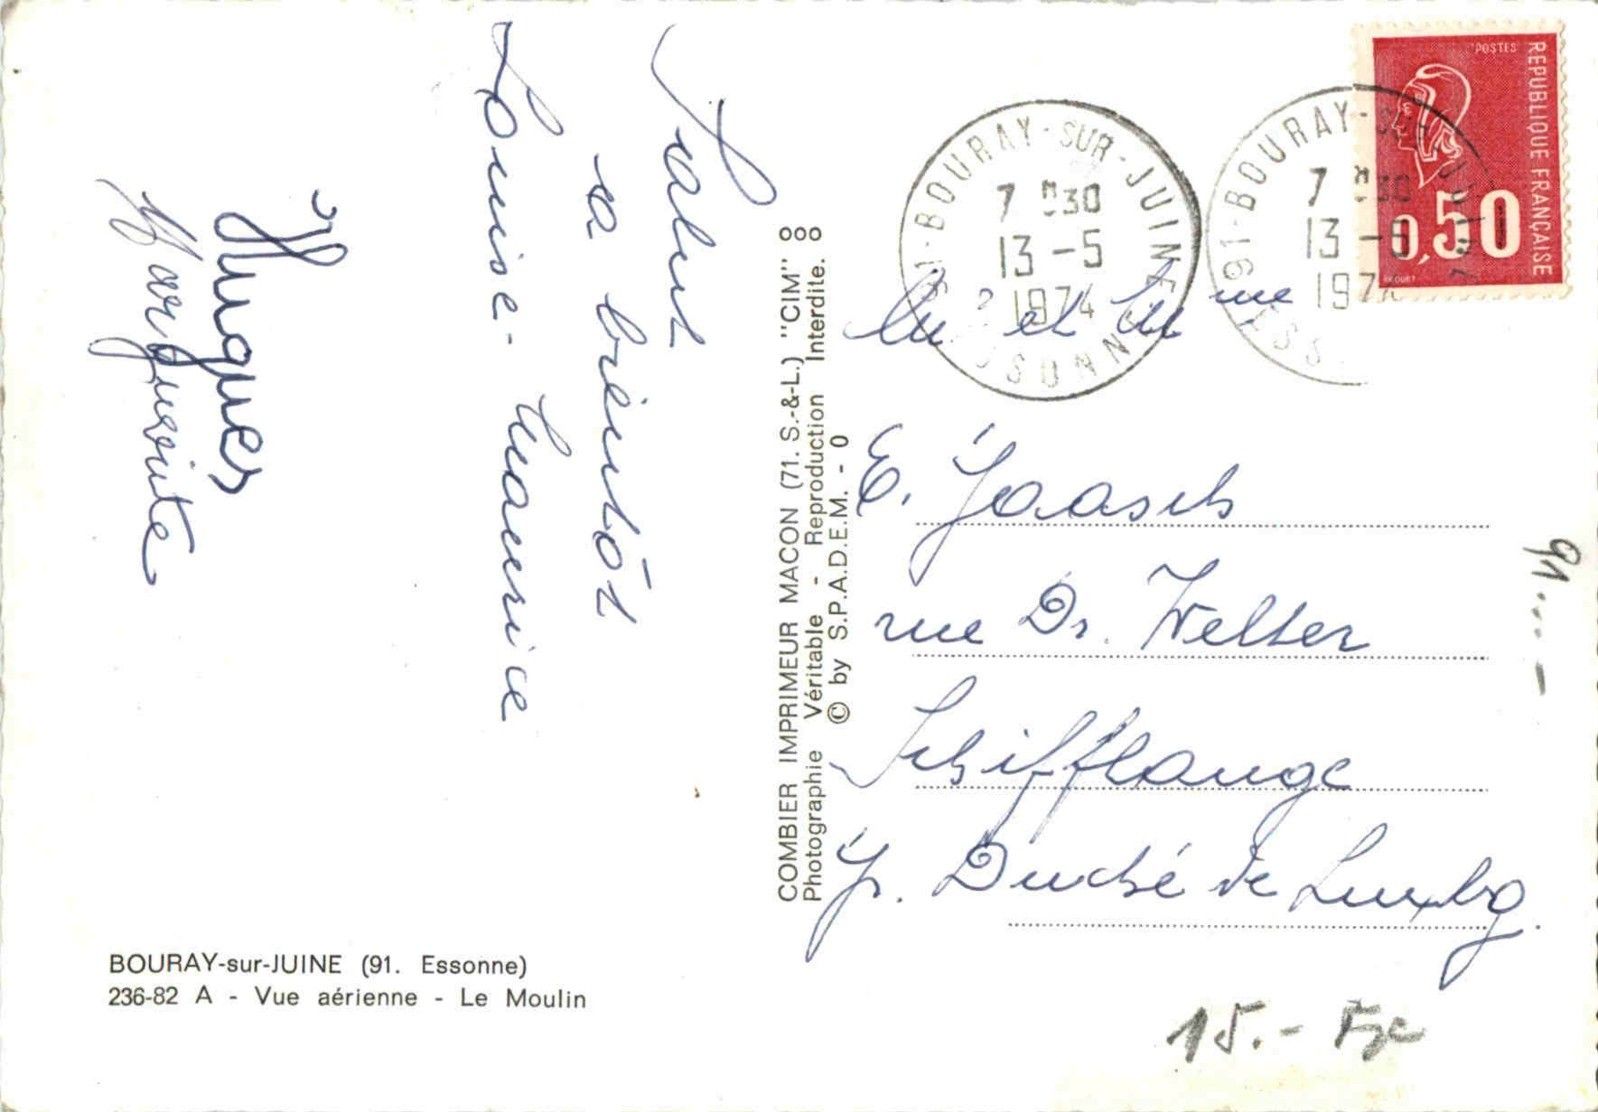 Salut
à bientôt
Louise-Maurice
Hugues
Marguerite
BOURAY-sur-JUINE (91. Essonne)
236-82 A - Vue aérienne - Le Moulin
COMBIER IMPRIMEUR MACON (71. S.-&-L.) "CIM"
Photographie Véritable - Reproduction Interdite.
© by S.P.A.D.E.M. - 0
91-BOURAY-SUR-JUINE
7 H30
13-5
1974
ESSONNE
91-BOURAY-SUR-JUINE
7 H30
13-5
1974
POSTES
REPUBLIQUE FRANÇAISE
0,50
M et Mme
E. Jaasch
rue Dr. Welter
Schifflange
Gr. Duché de Luxbg.
91...-
15.-